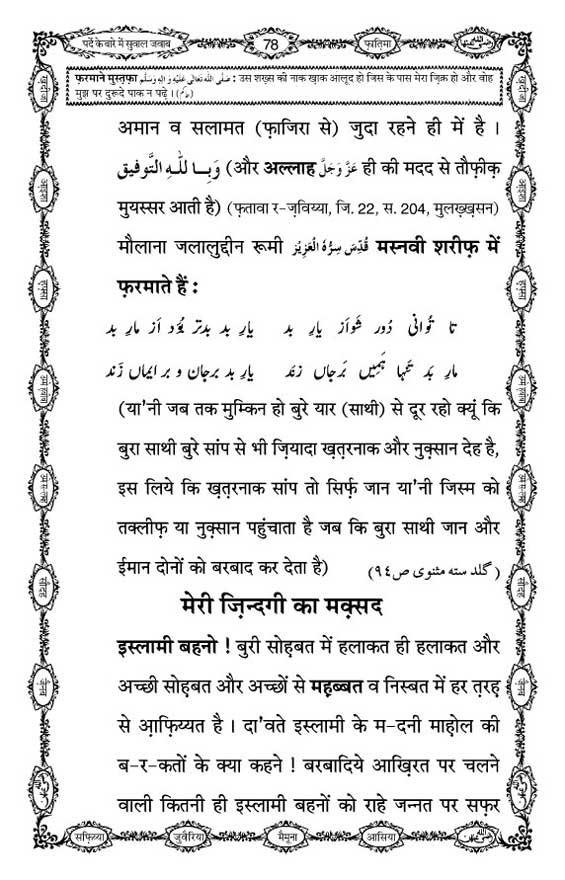 पर्दे के बारे में सुवाल जवाब
78
फ़ातिमा
फ़रमाने मुस्तफ़ा صَلَّى اللهُ تَعَالٰى عَلَيْهِ وَاٰلِهٖ وَسَلَّم : उस शख़्स की नाक ख़ाक आलूद हो जिस के पास मेरा ज़िक्र हो और वोह
मुझ पर दुरूदे पाक न पढ़े । (حاکم)
अमान व सलामत (फ़ाजिरा से) जुदा रहने ही में है ।
وَبِاللّٰهِ التَّوفِيق (और अल्लाह عَزَّوَجَلَّ ही की मदद से तौफ़ीक़
मुयस्सर आती है) (फ़तावा र-ज़विय्या, जि. 22, स. 204, मुलख़्ख़सन)
मौलाना जलालुद्दीन रूमी قُدِّسَ سِرُّهُ الْعَزِيْز मस्नवी शरीफ़ में
फ़रमाते हैं :
تا تُوانی دُور شَواَز یارِ بد یارِ بد بدتر بُوَد اَز مارِ بد
مارِ بَد تَنہا ہَمِیں بَرجاں زنَد یارِ بد برجان و بر ایماں زَند
(या'नी जब तक मुम्किन हो बुरे यार (साथी) से दूर रहो क्यूं कि
बुरा साथी बुरे सांप से भी ज़ियादा ख़त़रनाक और नुक़्सान देह है,
इस लिये कि ख़त़रनाक सांप तो सिर्फ़ जान या'नी जिस्म को
तक्लीफ़ या नुक़्सान पहुंचाता है जब कि बुरा साथी जान और
ईमान दोनों को बरबाद कर देता है) (گلدستہ مثنوی ص٩٤)
मेरी ज़िन्दगी का मक़्सद
इस्लामी बहनो ! बुरी सोह़बत में हलाकत ही हलाकत और
अच्छी सोह़बत और अच्छों से मह़ब्बत व निस्बत में हर त़रह़
से आ़फ़िय्यत है । दा'वते इस्लामी के म-दनी माह़ोल की
ब-र-कतों के क्या कहने ! बरबादिये आख़िरत पर चलने
वाली कितनी ही इस्लामी बहनों को राहे जन्नत पर सफ़र
सफ़िय्या
जुवैरिया
मैमूना
आसिया